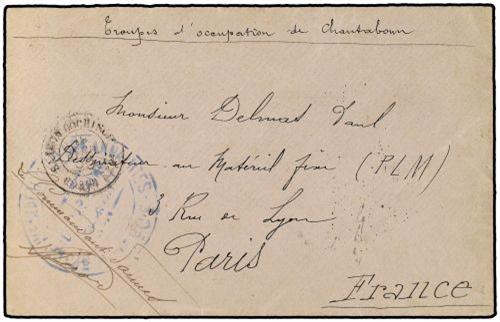 Troupes d'occupation de Chantaboun
Monsieur Delmas Paul
Dessinateur au Matériel fixe (PLM)
3 Rue de Lyon
Paris
France
SAIGON COCHINCHINE
Commandant d'armes